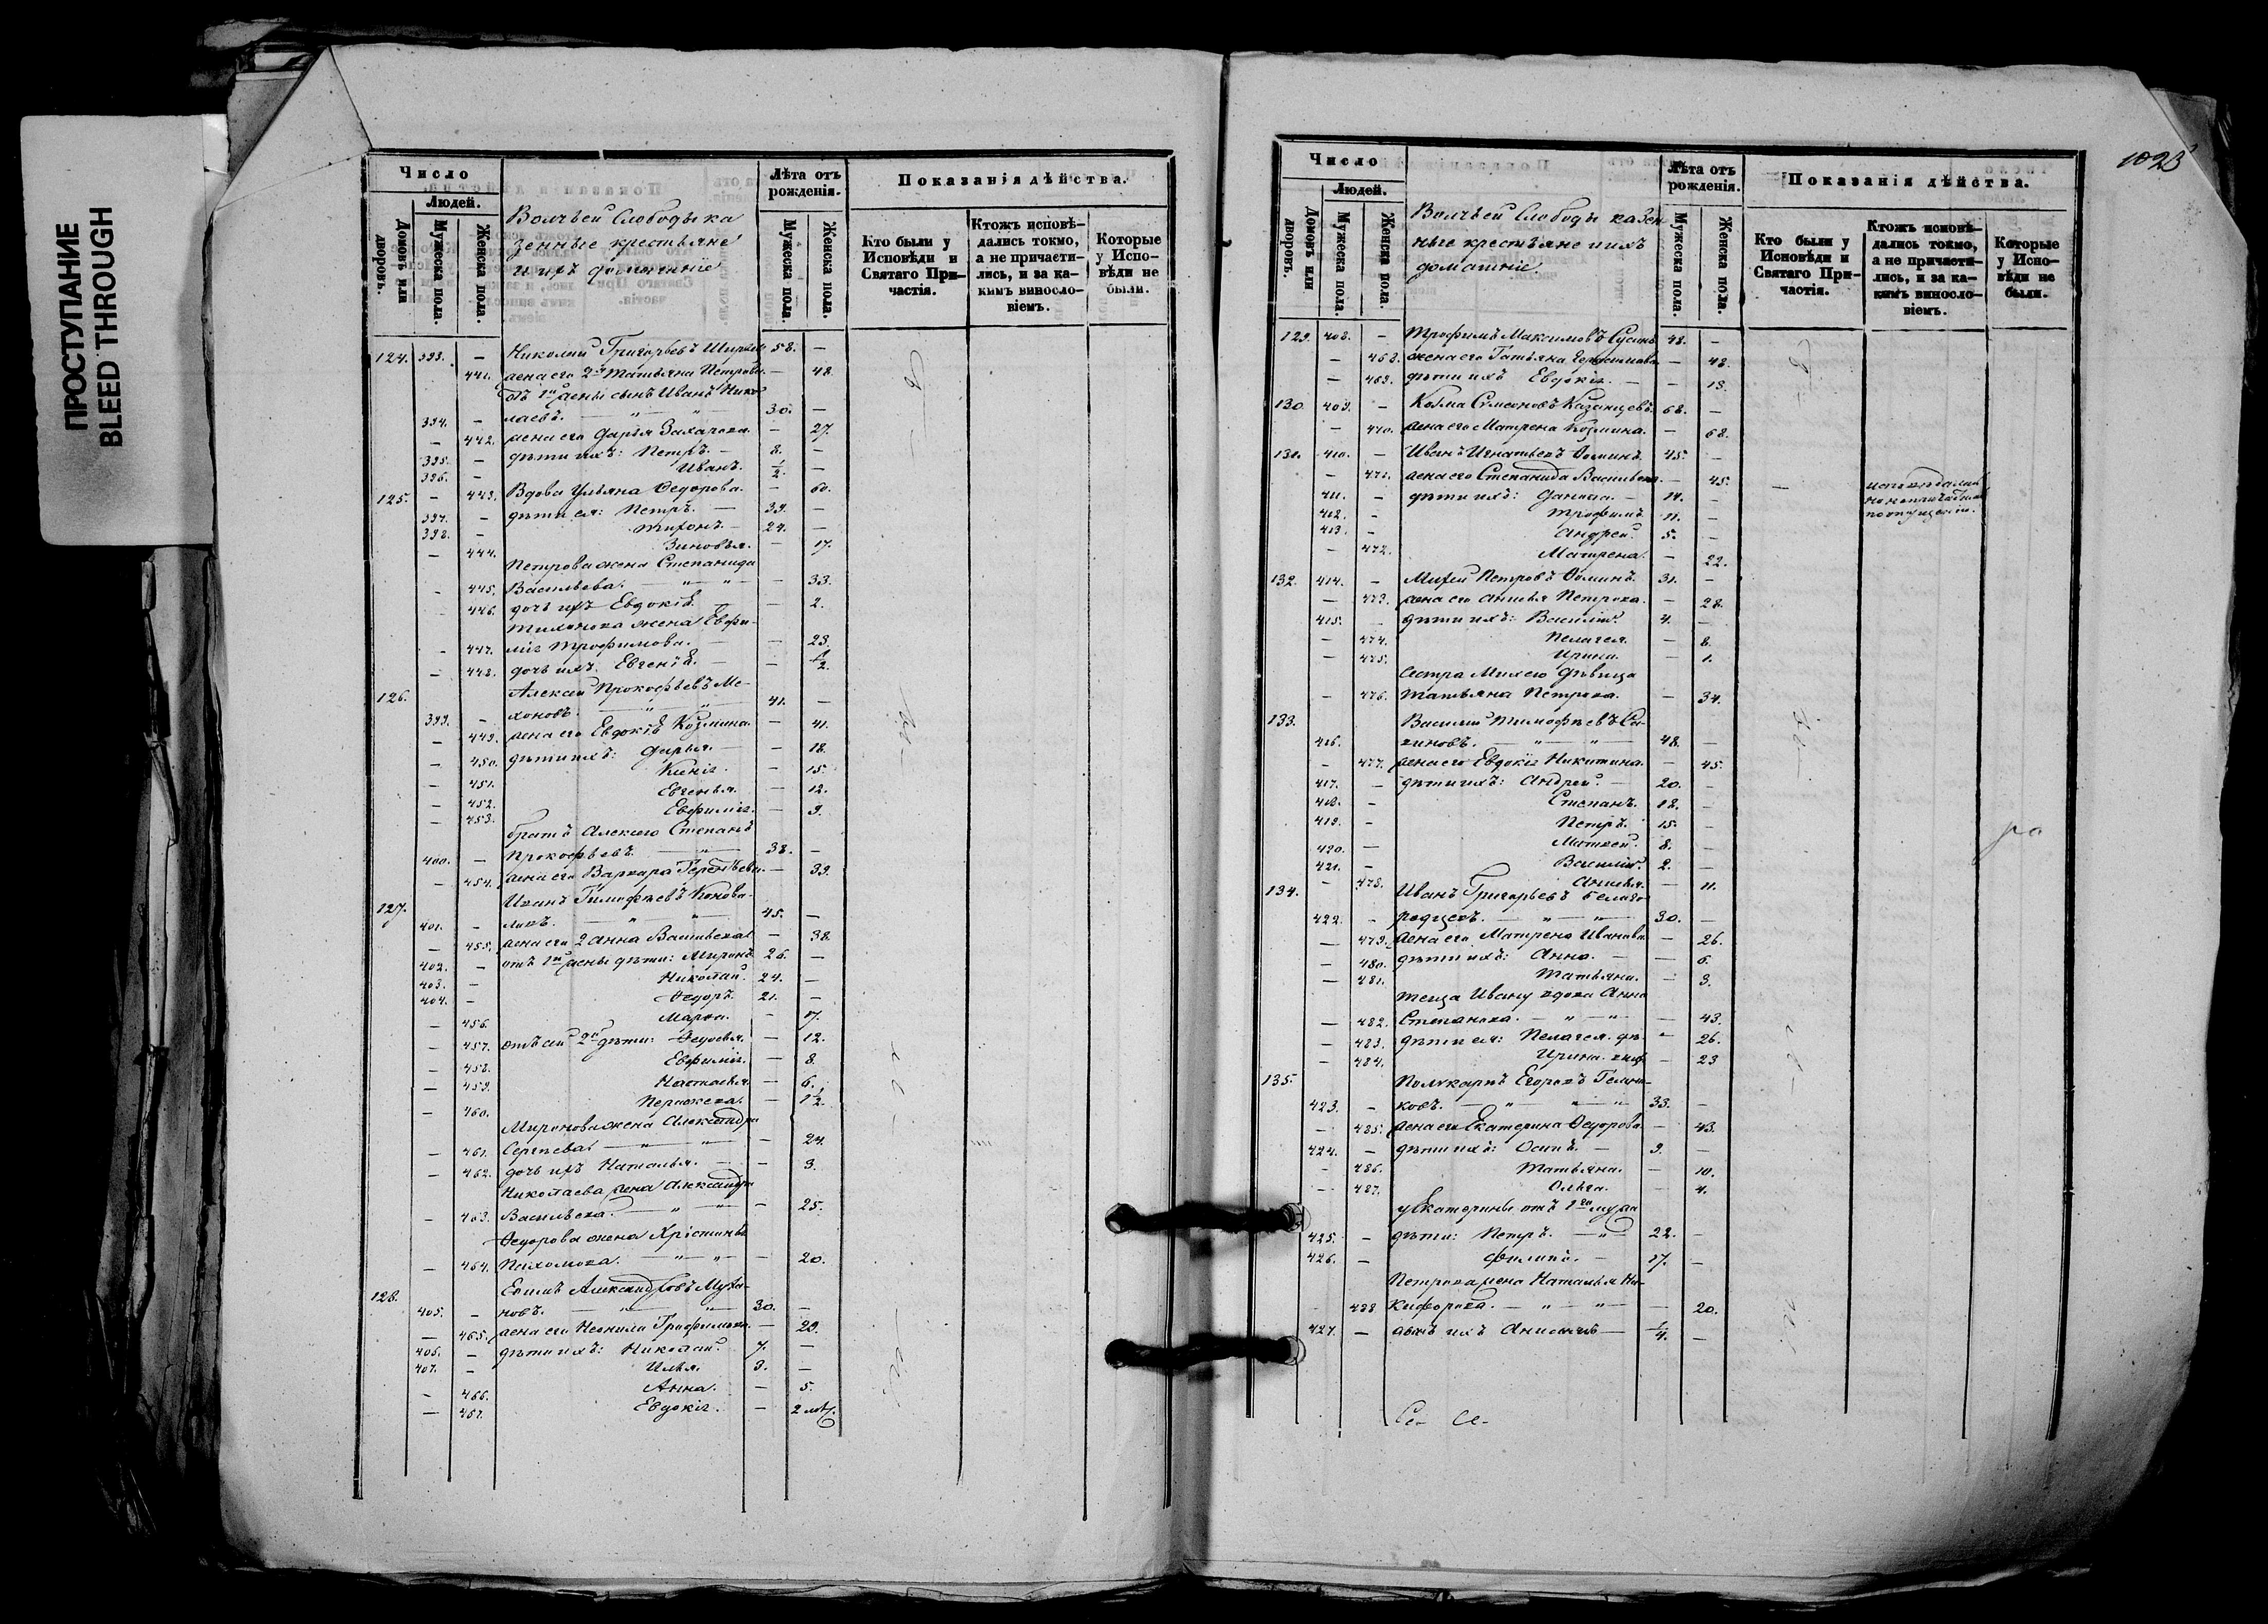 ПРОСТУПАНИЕ
BLEED THROUGH
Число
Людей.
Домовъ или дворовъ.
Мужеска пола.
Женска пола.
Волчьей Слободы ка
зенные крестьяне
и ихъ домашніе
Лѣта отъ рожденія.
Мужеска пола.
Женска пола.
Показанія дѣйства.
Кто были у Исповѣди и Святаго Причастія.
Ктожъ исповѣдались токмо, а не причастились, и за какимъ винословіемъ.
Которые у Исповѣди не были.
124. 393. – Николай Григорьевъ 58. –
441. жена его 2я Татьяна Петрова – 48.
отъ 1й жены сынъ Иванъ Нико
394. – лаевъ. 30. –
– 442. жена его Дарья Захарова. – 27.
395. – дѣти ихъ: Петръ. – 8. –
396. – Иванъ. 1/2. –
125. – 443. Вдова Ульяна Ѳедорова. – 60.
397. – дѣти ея: Петръ. – 39. –
398. – Тихонъ. – 24. –
– 444. Зиновья. – 17.
Петрова жена Степанида
– 445. Васильева. – 33.
– 446. дочь ихъ Евдокія. – – 2.
Тихонова жена Евфи-
– 447. мія Трофимова. – – 23.
– 448. дочь ихъ Евгенія. – – 1/2.
126. Алексій Прокофьевъ Ме-
399. – хоновъ. 41. –
– 449. жена его Евдокія Козмина. – 41.
– 450. дѣти ихъ: Дарья. – – 18.
– 451. Ксенія. – 15.
– 452. Евгенья. – 12.
– 453. Евфимія. – 9.
братъ Алексѣя Степанъ
400. – Прокофьевъ 38. –
– 454. жена его Варвара – 39.
127. Иванъ Тимофѣевъ Конова-
401. – ловъ. 45. –
– 455. жена его 2 Анна Васильева – 38.
402. – отъ 1й жены дѣти: Миронъ 26. –
403. – Николай. 24. –
404. – Ѳедоръ. 21. –
– 456. Марѳа. – 17.
– 457. отъ сей 2й дѣти: Ѳедосья. – 12.
– 458. Евфимія. – 8.
– 459. Настасья. – 6.
– 460. – 1 1/2.
Миронова жена Александра
– 461. Сергѣева. – 24.
– 462. дочь ихъ Наталья. – – 3.
Николаева жена Александра
– 463. Васильева. – 25.
Ѳедорова жена Христина
– 464. Пахомова. – 20.
128. Александровъ Муха-
405. – новъ. 30. –
– 465. жена его Неонила Трофимова. – 29.
406. – дѣти ихъ: Николай. 7. –
407. – Илья. 3. –
– 466. Анна. – 5.
– 467. Евдокія. – 2 мѣ.
1023
Число
Людей.
Домовъ или дворовъ.
Мужеска пола.
Женска пола.
Волчьей Слободы казен
ные крестьяне и ихъ
домашніе.
Лѣта отъ рожденія.
Мужеска пола.
Женска пола.
Показанія дѣйства.
Кто были у Исповѣди и Святаго Причастія.
Ктожъ исповѣдались токмо, а не причастились, и за какимъ винословіемъ.
Которые у Исповѣди не были.
129. 408. – Трофимъ Максимовъ 48. –
– 468. жена его Татьяна Герасимова – 48.
– 469. дѣти ихъ Евдокія. – – 13.
130. 409. – Козма Симеоновъ Казанцевъ. 68. –
– 470. жена его Матрена Козмина. – 68.
131. 410. – Иванъ Игнатьевъ Ѳоминъ. 45. –
– 471. жена его Степанида Васильева. – 45.
411. – дѣти ихъ: Данила. – 14. –
412. – Трофимъ 11. –
413. – Андрей. 5. –
– 472. Матрена. – 22.
132. 414. – Михей Петровъ Ѳоминъ. 31. –
– 473. жена его Анисья Петрова. – 28.
415. – дѣти ихъ: Василій. 4. –
– 474. Пелагея. – 8.
– 475. Ирина. – 1.
Сестра Михея дѣвица
– 476. Татьяна Петрова. – 34.
133. Василій Тимофѣевъ
416. 48. –
– 477. жена его Евдокія Никитина. – 45.
417. – дѣти ихъ: Андрей. – 20. –
418. – Степанъ. 18. –
419. – Петръ. 15. –
420. – Матвей. 8. –
421. – Василій. 2. –
– 478. Анисья. – 11.
134. Иванъ Григорьевъ Белаго-
422. – родцевъ. 30. –
– 479. жена его Матрена Иванова – 26.
– 480. дѣти ихъ: Анна. – – 6.
– 481. Татьяна. – 3.
теща Ивану вдова Анна
– 482. Степанова. – 43.
– 483. дѣти ея: Пелагея. дѣ. – 26.
– 484. Ирина. – 23
135. Поликарпъ Егоровъ
423. – ковъ. 33. –
– 485. жена его Екатерина Ѳедорова. – 43.
424. – дѣти ихъ: Осипъ. – 9. –
– 486. Татьяна. – 10.
– 487. Ольга. – 4.
у Екатерины отъ 1го мужа
425. – дѣти: Петръ. 22. –
426. – Филипъ. – 17. –
Петрова жена Наталья Ни-
– 488 кифорова. – 20.
427. – сынъ ихъ 1/4. –